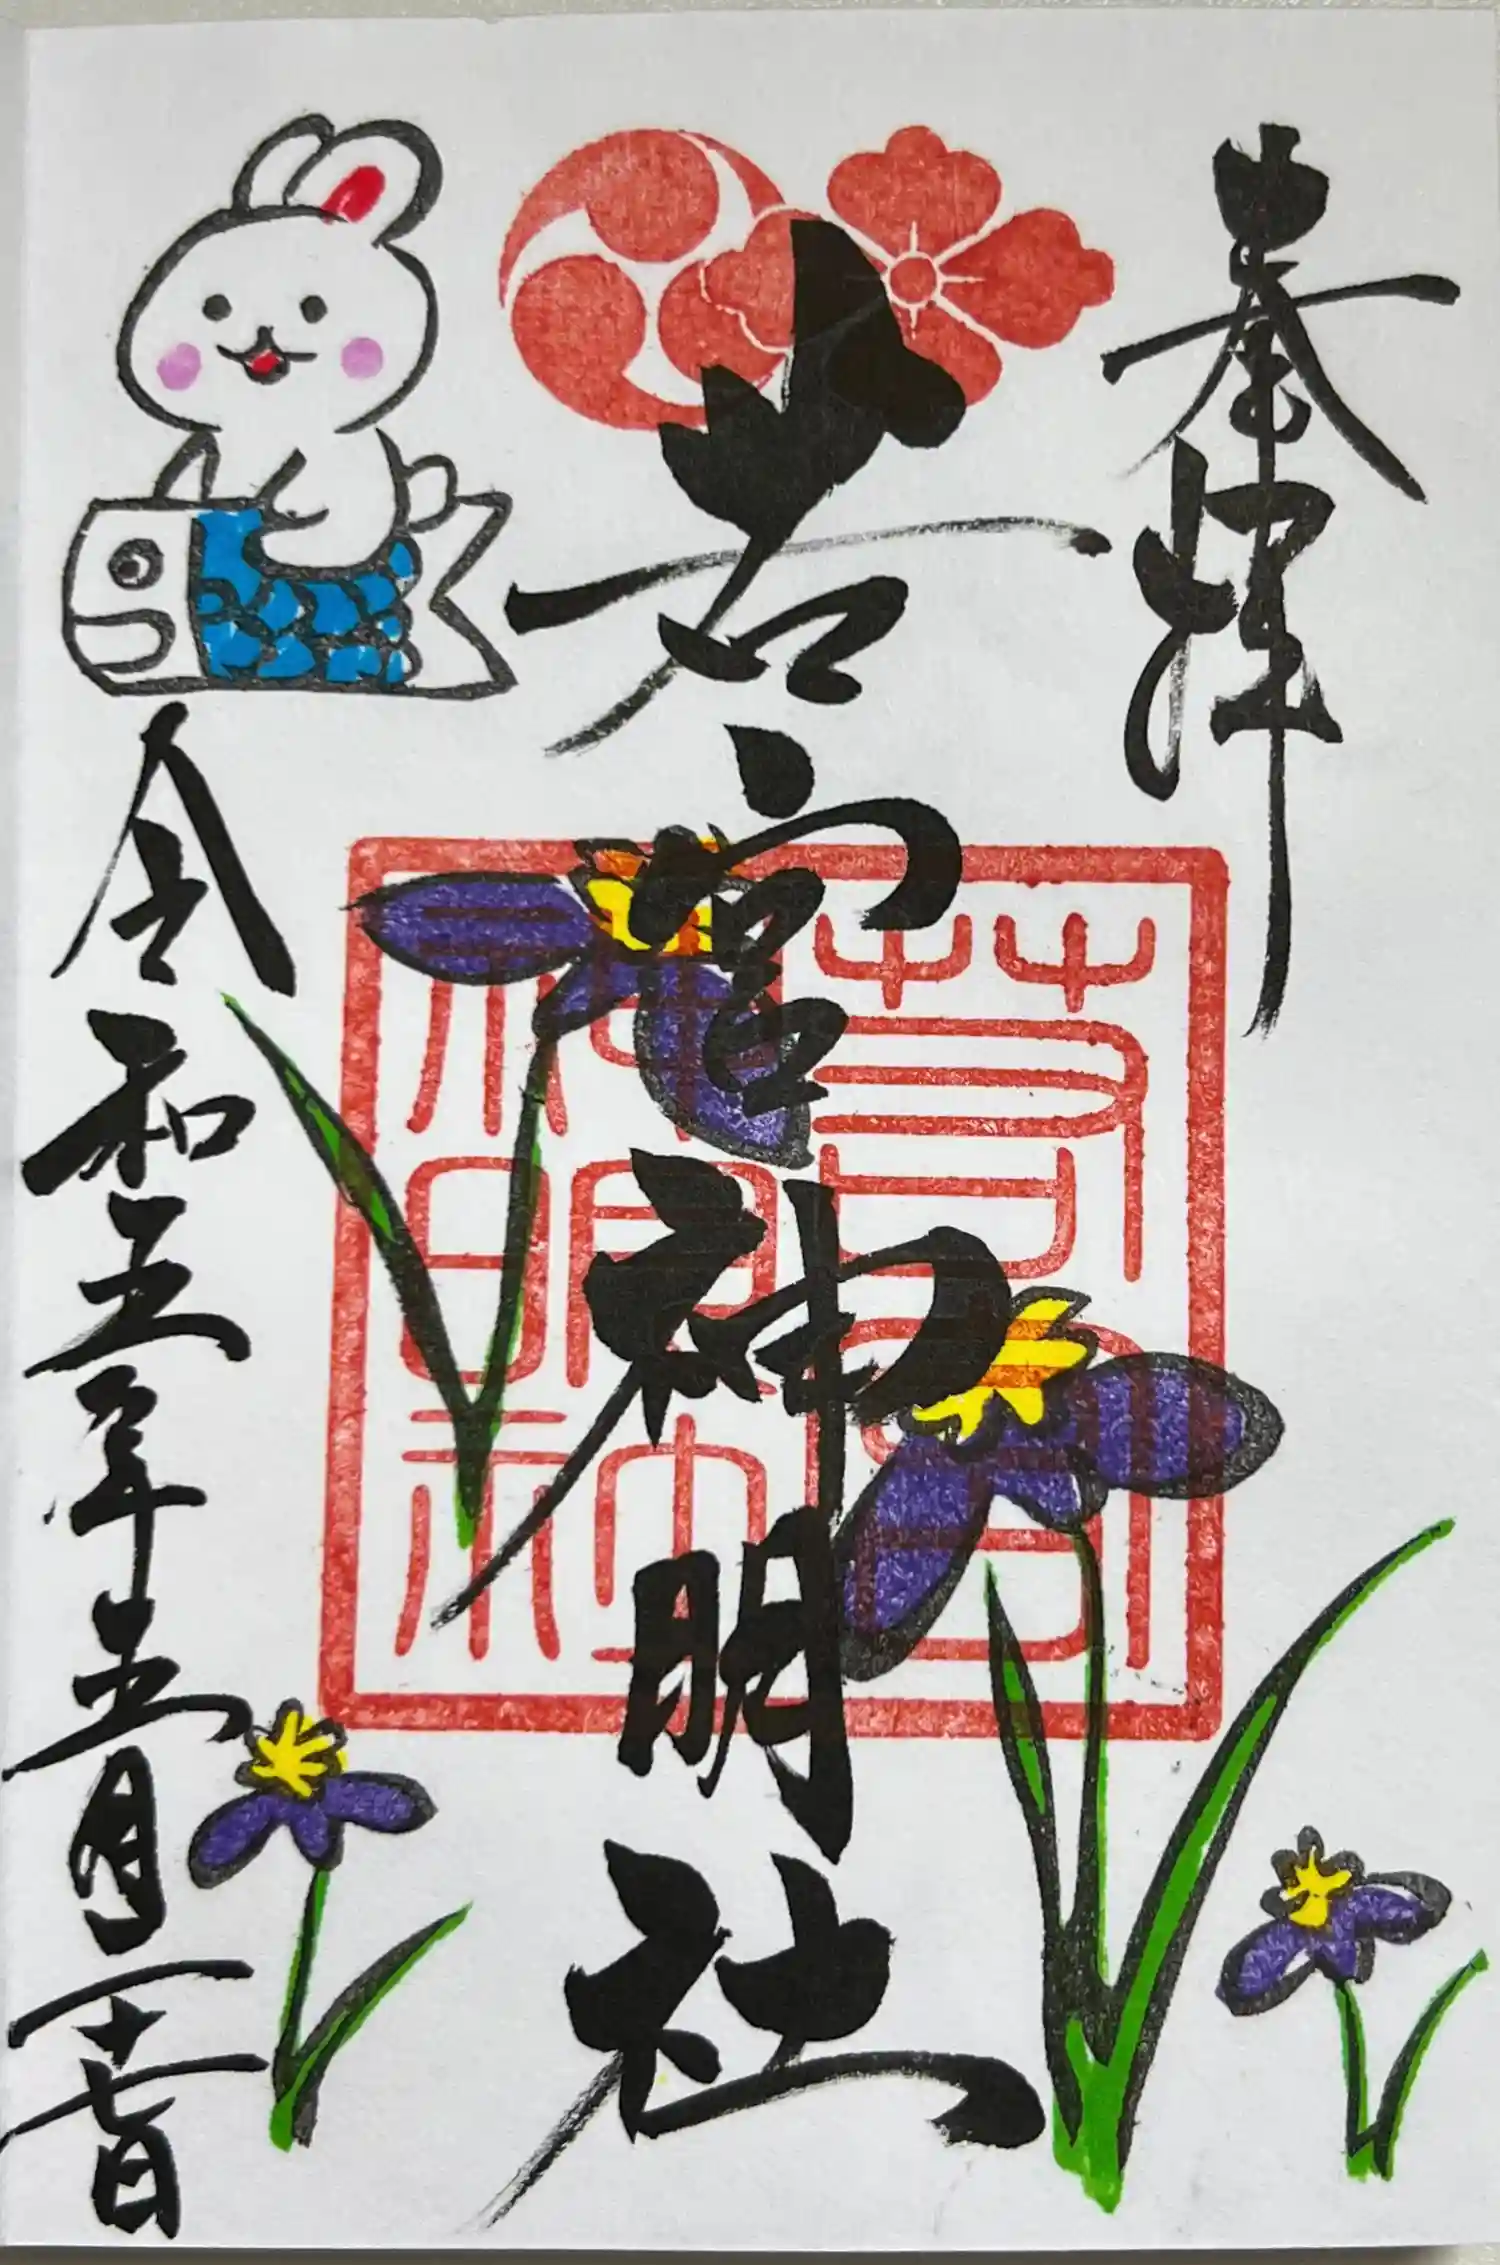 奉拝
若宮神明社
令和五年五月二十七日
若宮
神明社